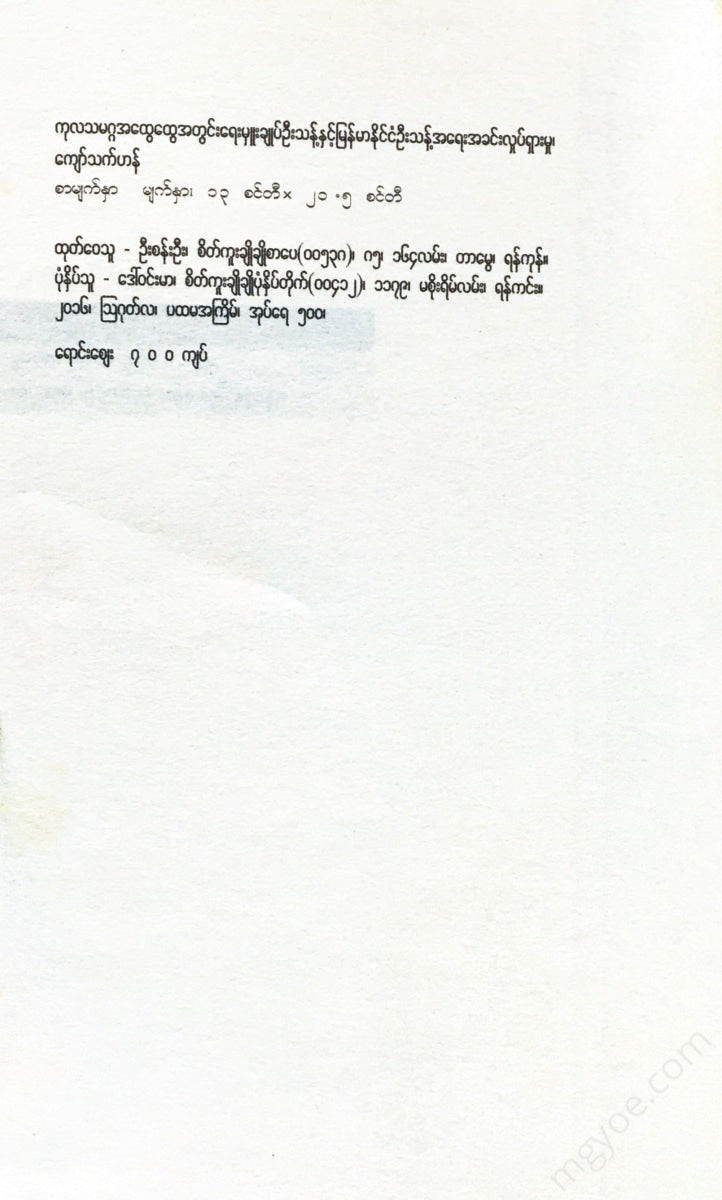 ကုလသမဂ္ဂအထွေထွေအတွင်းရေးမှူးချုပ်ဦးသန့်နှင့်မြန်မာနိုင်ငံဦးသန့်အရေးအခင်းလှုပ်ရှားမှု၊
ကျော်သက်ဟန်
စာမျက်နှာ မျက်နှာ၊ ၁၃ စင်တီ × ၂၁ ·၅ စင်တီ
ထုတ်ဝေသူ - ဦးစန်းဦး၊ စိတ်ကူးချိုချိုစာပေ(၀၀၅၃၈)၊ ဂ၅၊ ၁၆၄လမ်း၊ တာမွေ၊ ရန်ကုန်။
ပုံနှိပ်သူ - ဒေါ်ဝင်းမာ၊ စိတ်ကူးချိုချိုပုံနှိပ်တိုက်(၀၀၄၁၂)၊ ၁၁၇၉၊ မစိုးရိမ်လမ်း၊ ရန်ကင်း။
၂၀၁၆၊ ဩဂုတ်လ၊ ပထမအကြိမ်၊ အုပ်ရေ ၅၀၀၊
ရောင်းဈေး ၇ ၀ ၀ ကျပ်
mgyoe.com